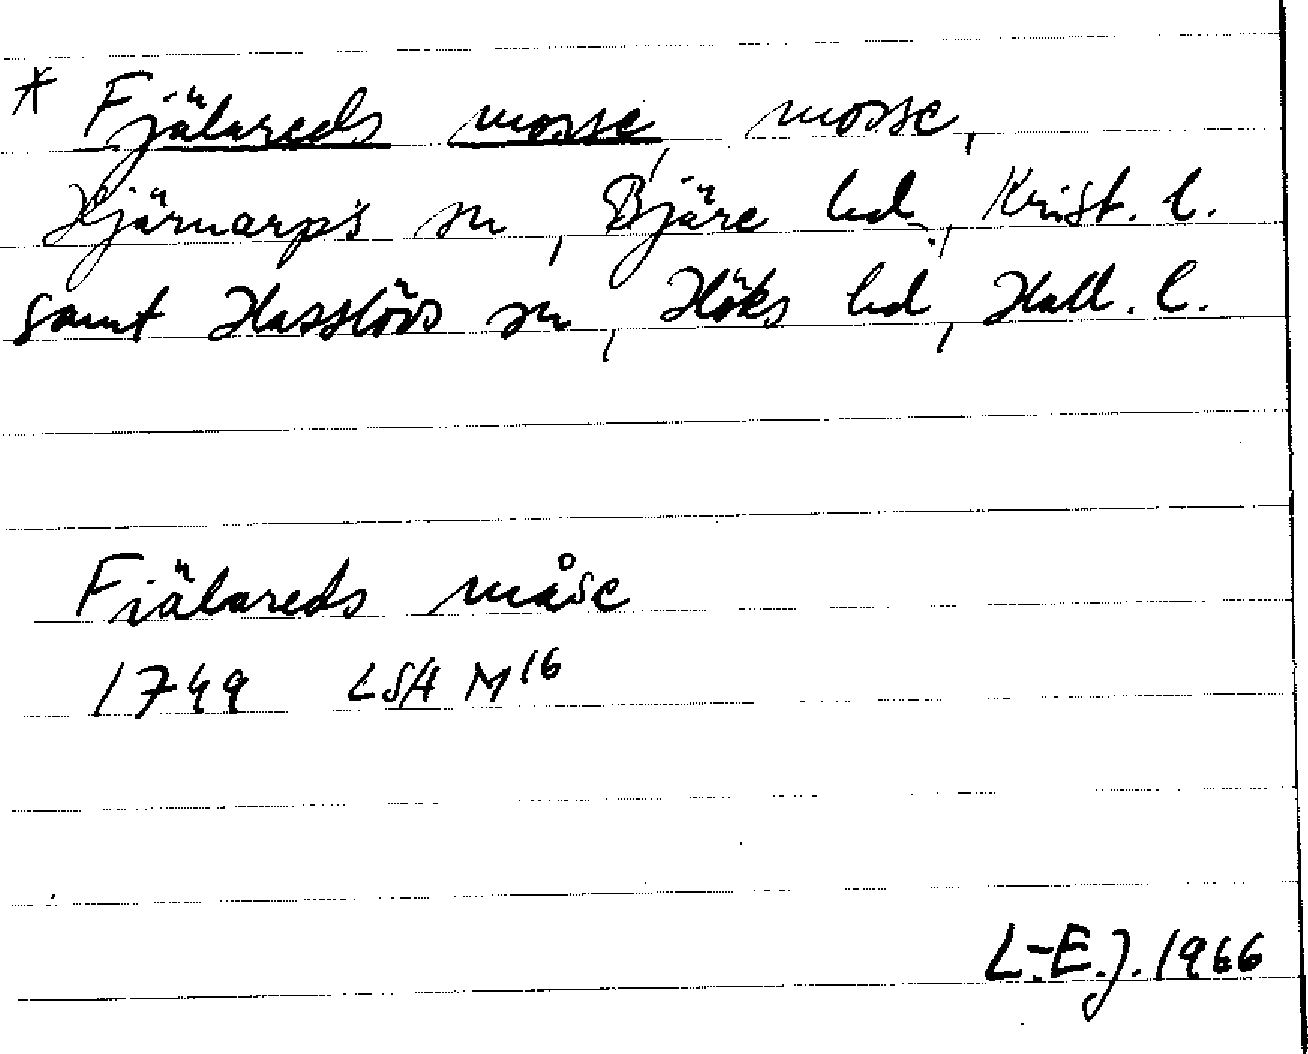 * Fjälareds mosse, mosse,
Hjärnarps sn, Bjäre hd, Krist. l.
samt Hasslövs sn, Höks hd, Hall. l.
Fiälareds måse
1749 LSA M16
L-E.J. 1966